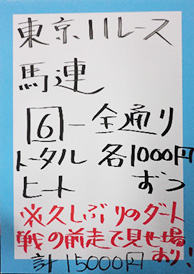 東京11レース
馬連
6-全通り
トータル 各1000円
ヒート ずつ
※久しぶりのダート
戦の前走で見せ場
あり、
計15000円